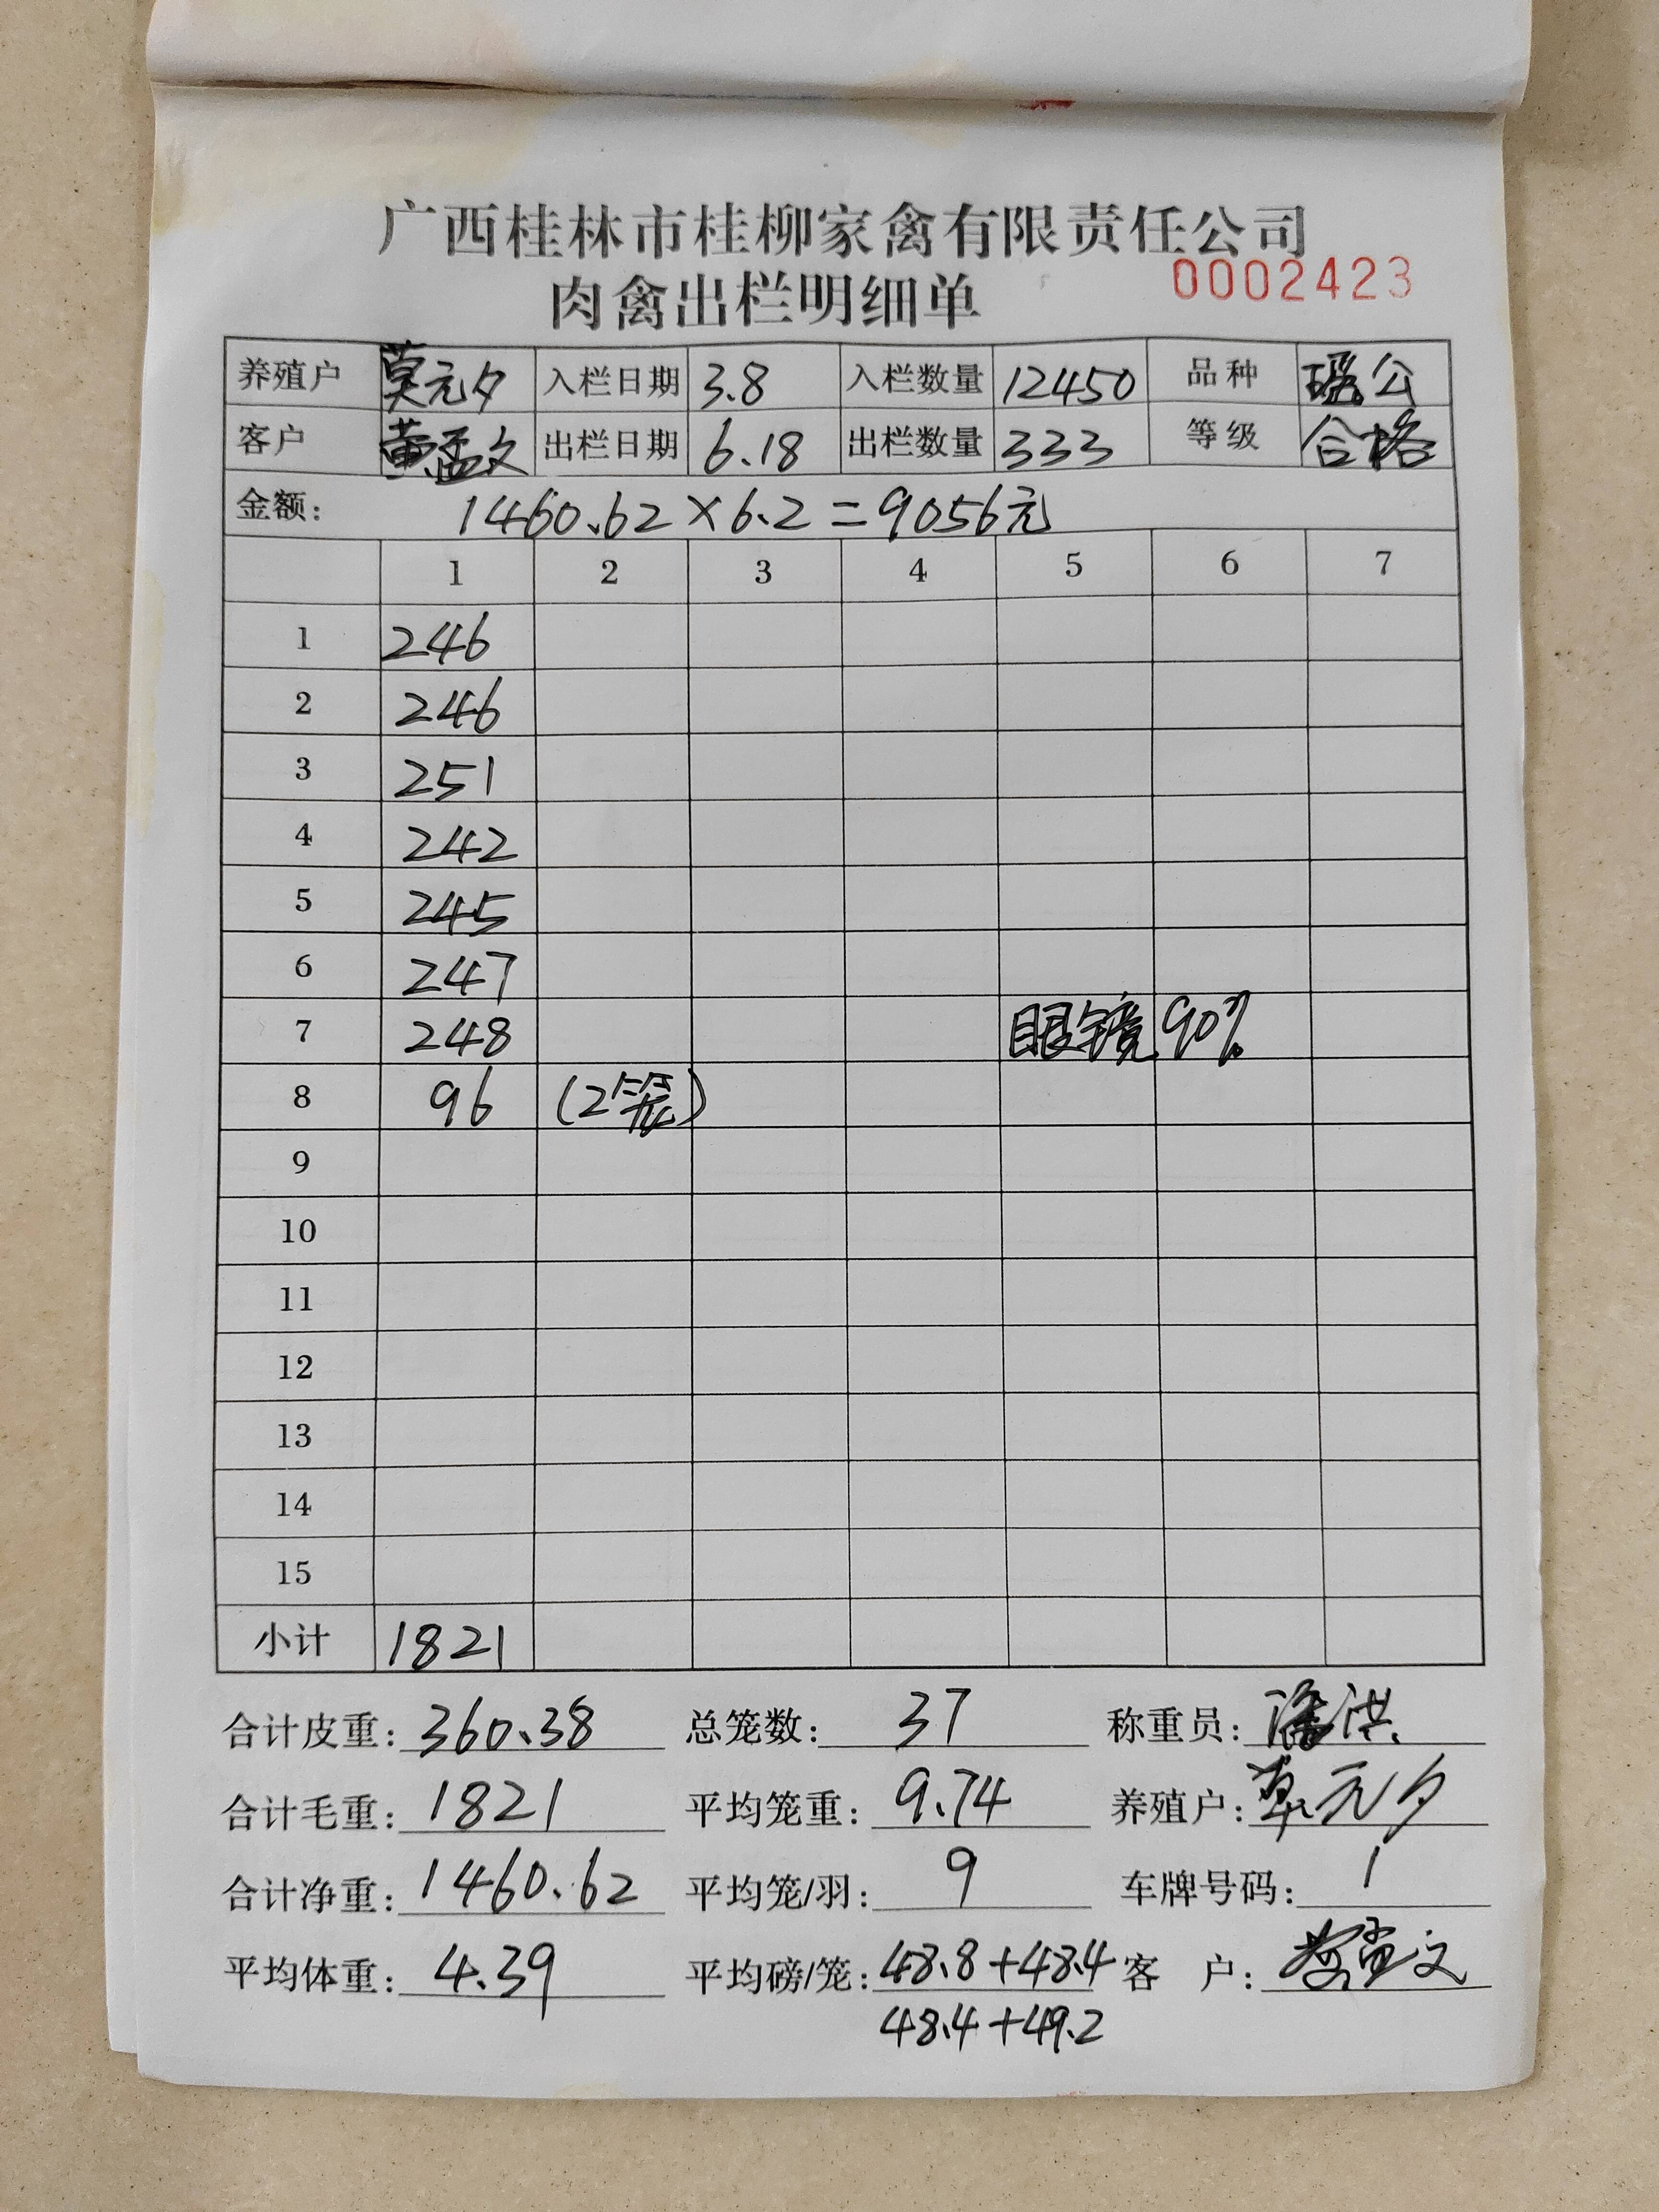 广西桂林市桂柳家禽有限责任公司
肉禽出栏明细单 0002423
养殖户 莫元夕 入栏日期 3.8 入栏数量 12450 品种 瑶公
客户 黄孟文 出栏日期 6.18 出栏数量 333 等级 合格
金额: 1460.62×6.2=9056元
1 2 3 4 5 6 7
1 246
2 246
3 251
4 242
5 245
6 247
7 248 眼镜90%
8 96 (2笼)
9
10
11
12
13
14
15
小计 1821
合计皮重: 360.38 总笼数: 37 称重员: 潘洪
合计毛重: 1821 平均笼重: 9.74 养殖户: 莫元夕
合计净重: 1460.62 平均笼/羽: 9 车牌号码: 1
平均体重: 4.39 平均磅/笼: 48.8+48.4 客 户: 黄孟文
48.4+49.2